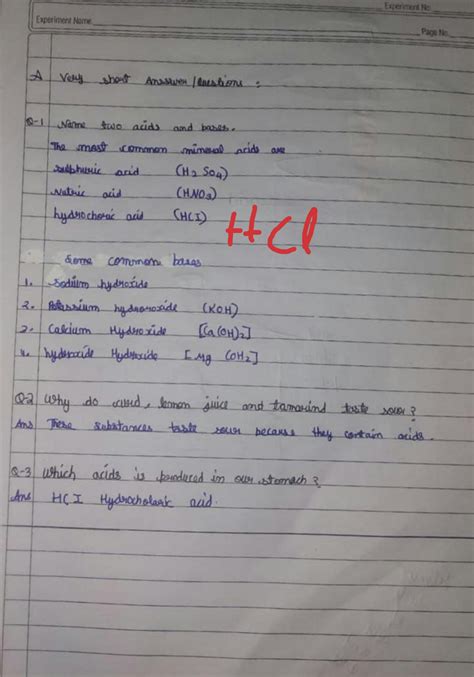 Experiment No.
Experiment Name
Page No.
A Very short Answer/Questions :
Q-1 Name two acids and bases.
The most common mineral acids are
sulphuric acid (H2SO4)
Nitric acid (HNO3)
hydrochoric acid (HCI) HCl
Some common bases
1. Sodium hydroxide
2. Potassium hydroxoxide (KOH)
2. Calcium Hydroxide [Ca(OH)2]
4. hydroxide Hydroxide [Mg (OH2]
Q-2 Why do curd, lemon juice and tamarind taste sour?
Ans These substances taste sour because they contain acids.
Q-3 Which acids is produced in our stomach?
Ans HCI Hydrocholaric acid.